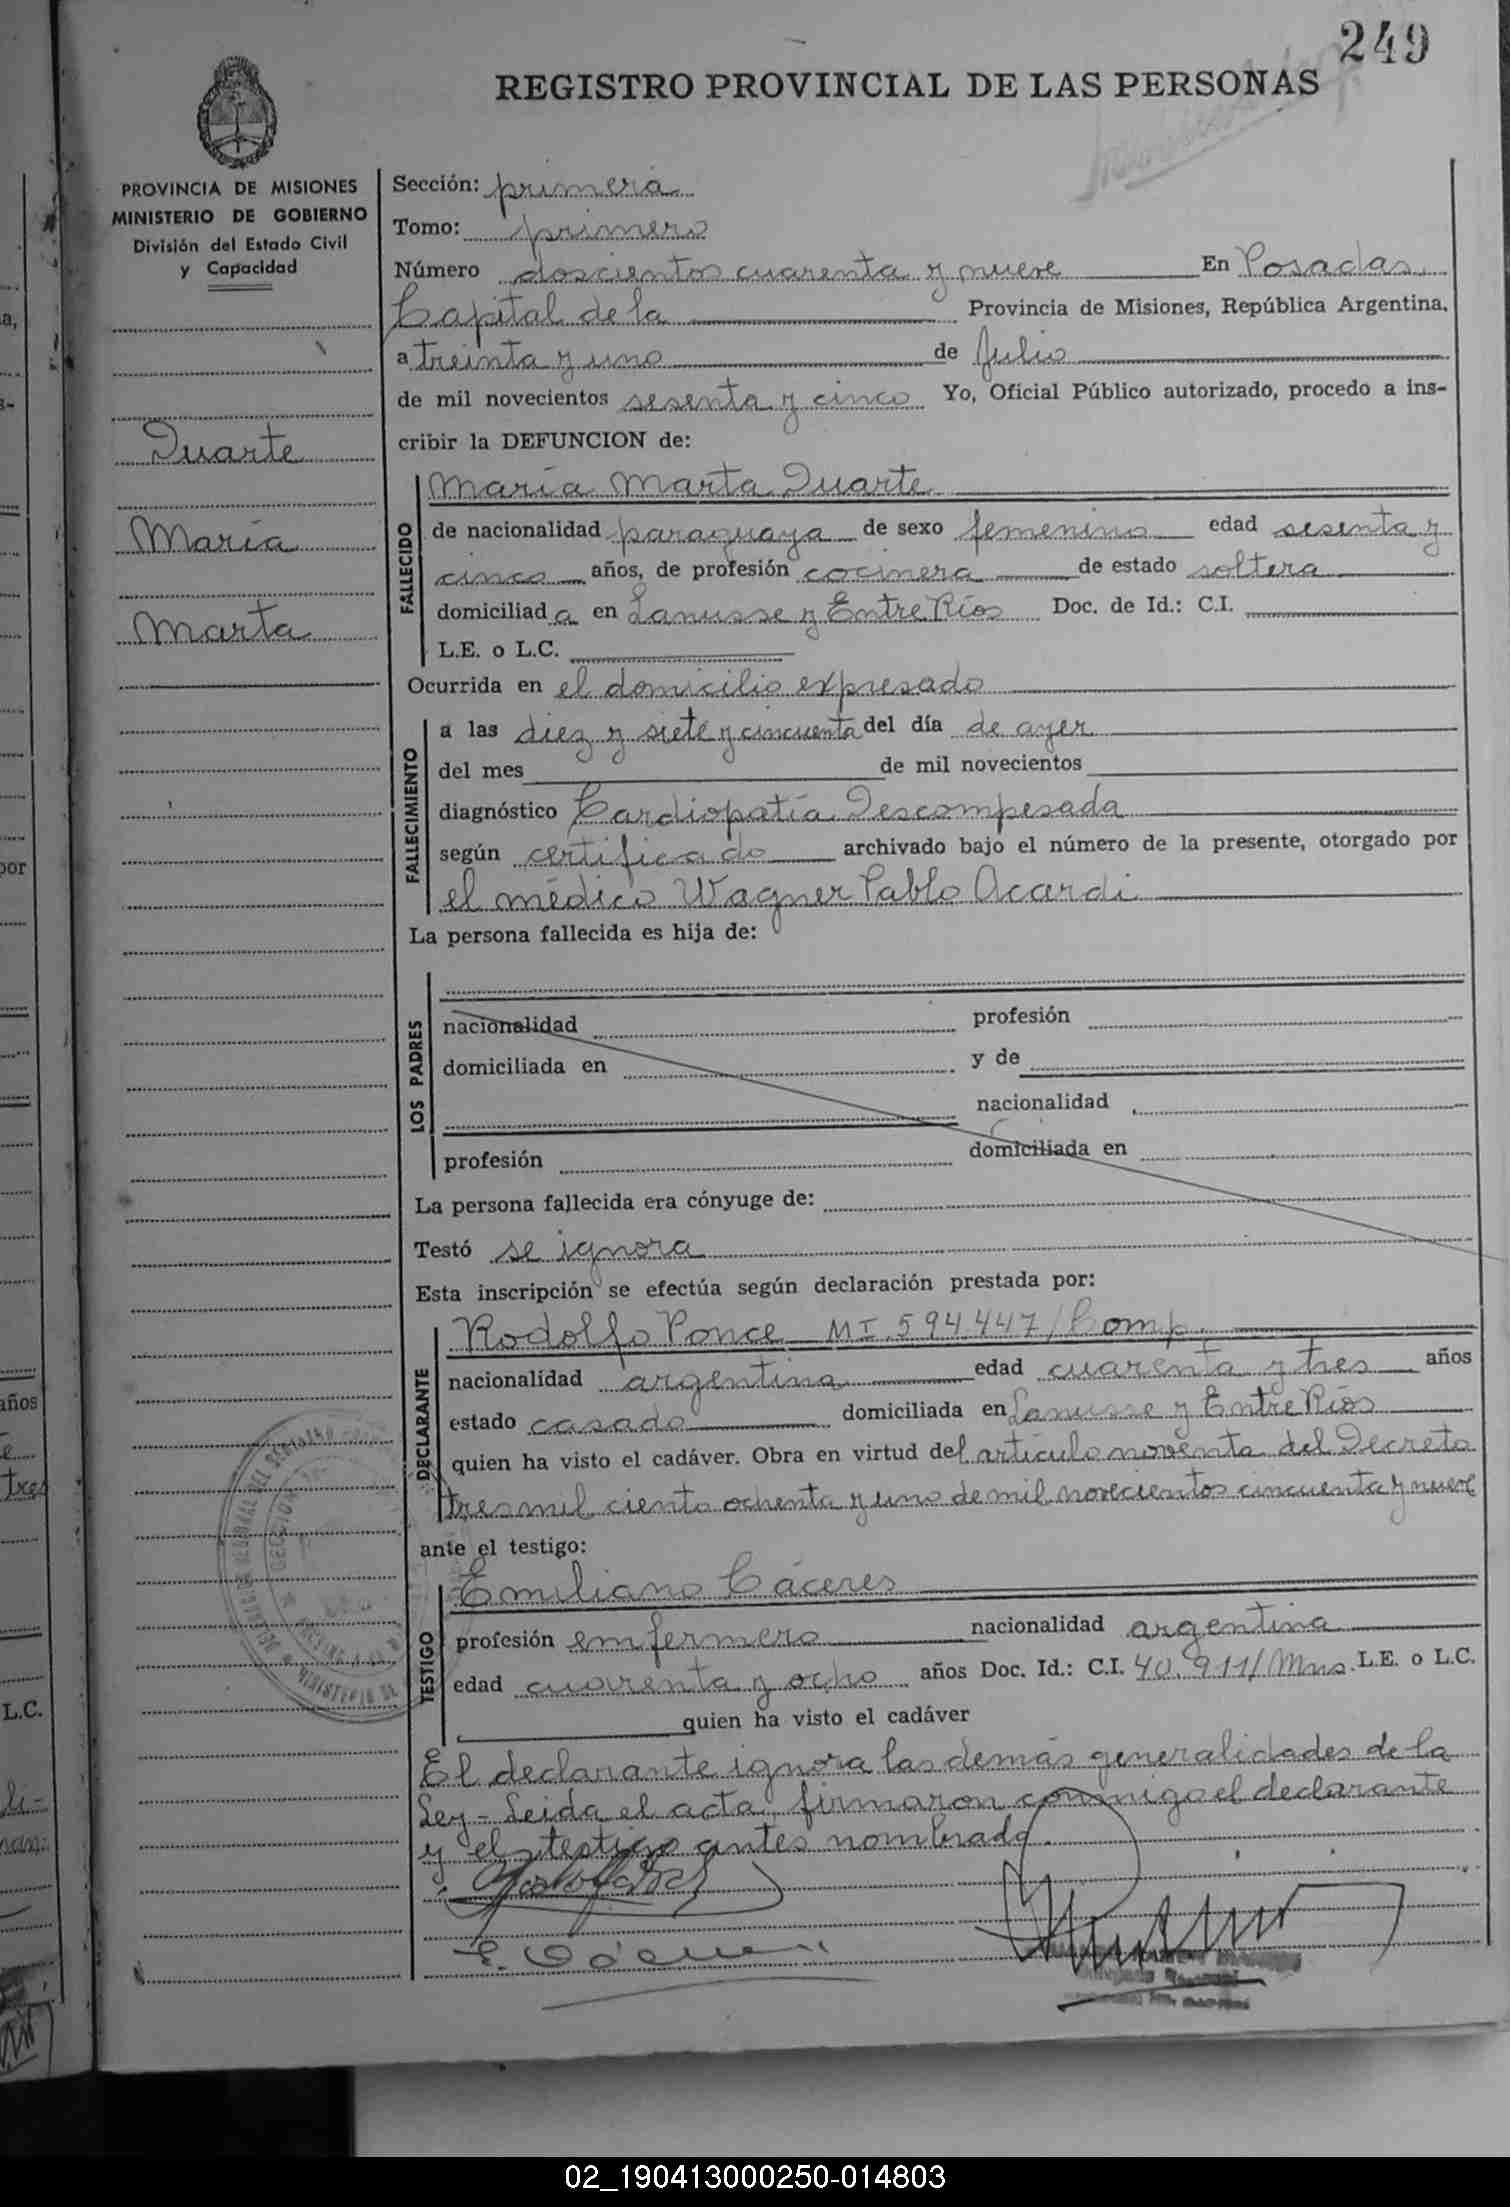 249
REGISTRO PROVINCIAL DE LAS PERSONAS
PROVINCIA DE MISIONES
MINISTERIO DE GOBIERNO
División del Estado Civil
y Capacidad
Duarte
María
Marta
Sección: primera
Tomo: primero
Número doscientos cuarenta y nueve En Posadas,
Capital de la Provincia de Misiones, República Argentina,
a treinta y uno de Julio
de mil novecientos sesenta y cinco Yo, Oficial Público autorizado, procedo a ins-
cribir la DEFUNCION de:
FALLECIDO
María Marta Duarte
de nacionalidad paraguaya de sexo femenino edad sesenta y
cinco años, de profesión cocinera de estado soltera
domiciliada en Lanusse y Entre Ríos Doc. de Id.: C.I.
L.E. o L.C.
Ocurrida en el domicilio expresado
FALLECIMIENTO
a las diez y siete y cincuenta del día de ayer
del mes de mil novecientos
diagnóstico Cardiopatía Descompesada
según certificado archivado bajo el número de la presente, otorgado por
el médico Wagner Pablo Acardi
La persona fallecida es hija de:
LOS PADRES
nacionalidad profesión
domiciliada en y de
nacionalidad
profesión domiciliada en
La persona fallecida era cónyuge de:
Testó se ignora
Esta inscripción se efectúa según declaración prestada por:
DECLARANTE
Rodolfo Ponce MI. 594.447/Comp.
nacionalidad argentina edad cuarenta y tres años
estado casado domiciliada en Lanusse y Entre Ríos
quien ha visto el cadáver. Obra en virtud del artículo noventa del Decreto
tres mil ciento ochenta y uno de mil novecientos cincuenta y nueve
ante el testigo:
TESTIGO
Emiliano Cáceres
profesión enfermero nacionalidad argentina
edad cuarenta y ocho años Doc. Id.: C.I. 40.911/Mns. L.E. o L.C.
quien ha visto el cadáver
El declarante ignora las demás generalidades de la
Ley - Leida el acta, firmaron conmigo el declarante
y el testigo antes nombrado.
02_190413000250-014803